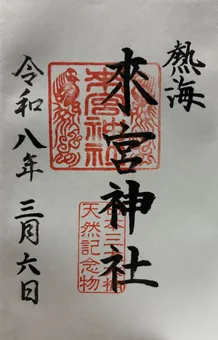 熱海
來宮神社
來宮神社
天然記念物
令和八年 三月六日